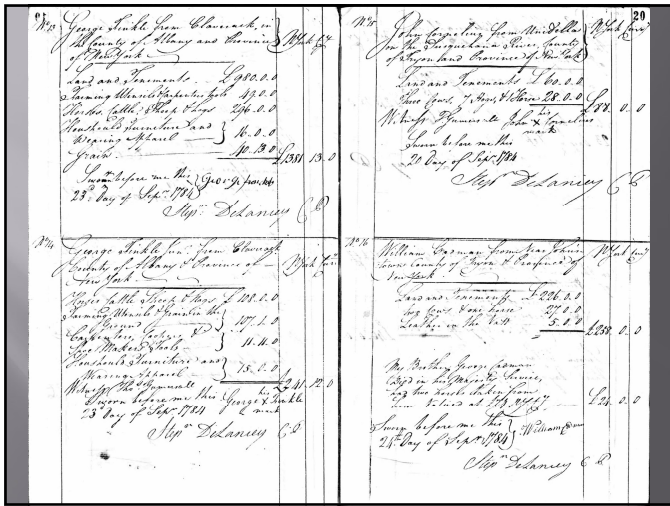 No 13
George Finkle from Claverack, in
the County of Albany and Province
of New York
N York Cy
Land and Tenements £980.0.0
Farming Utensils & Carpenters tools 49.0.0
Horses, Cattle, Sheep & Hogs 296.0.0
Household Furneture and
Wearing Apparel 16.0.0
Grain 40.13.0
£1381 13.0
Sworn before me this
23d Day of Sepr. 1784
George finckel
Stepn. DeLancey C P
No 14
George Finkle Junr. from Claverack
County of Albany & Province of
New York
N York Curr
Horses Cattle Sheep & Hogs £108.0.0
Farming Utensils & Grain in the
Ground 107.1.0
Carpenters, &
Shoe Makers Tools 11.4.0
Household Furniture and
Waring Apparel 15.0.0
£241.12.0
Witness Thos. Gummersall
Sworn before me this
23d Day of Sepr. 1784
George his X mark Finkle
Stepn. DeLancey C P
20
No 15
John Corneliug from Unidella
on the Susquehana River County
of Tryon and Province of New York
N York Curry
Land and Tenements £60.0.0
Three Cows, 7 Hogs, & Horse 28.0.0
£88. 0.0
Witness T Gummersall
John his X mark Cornelius
Sworn before me this
20 Day of Sepr. 1784
Stepn. DeLancey C P
No 16
William Cadman from Near
Town County of Tryon & Province of
New York
N York Curry
Land and Tenements £226.0.0
two Cows & one horse 27.0.0
Leather in the Vatt 5.0.0
£258. 0.0
My Brother George Cadman
in his Majestys Service,
and two horses taken from
him
£24. 0.0
Sworn before me this
24th Day of Sepr 1784
William
Stepn. DeLancey C P